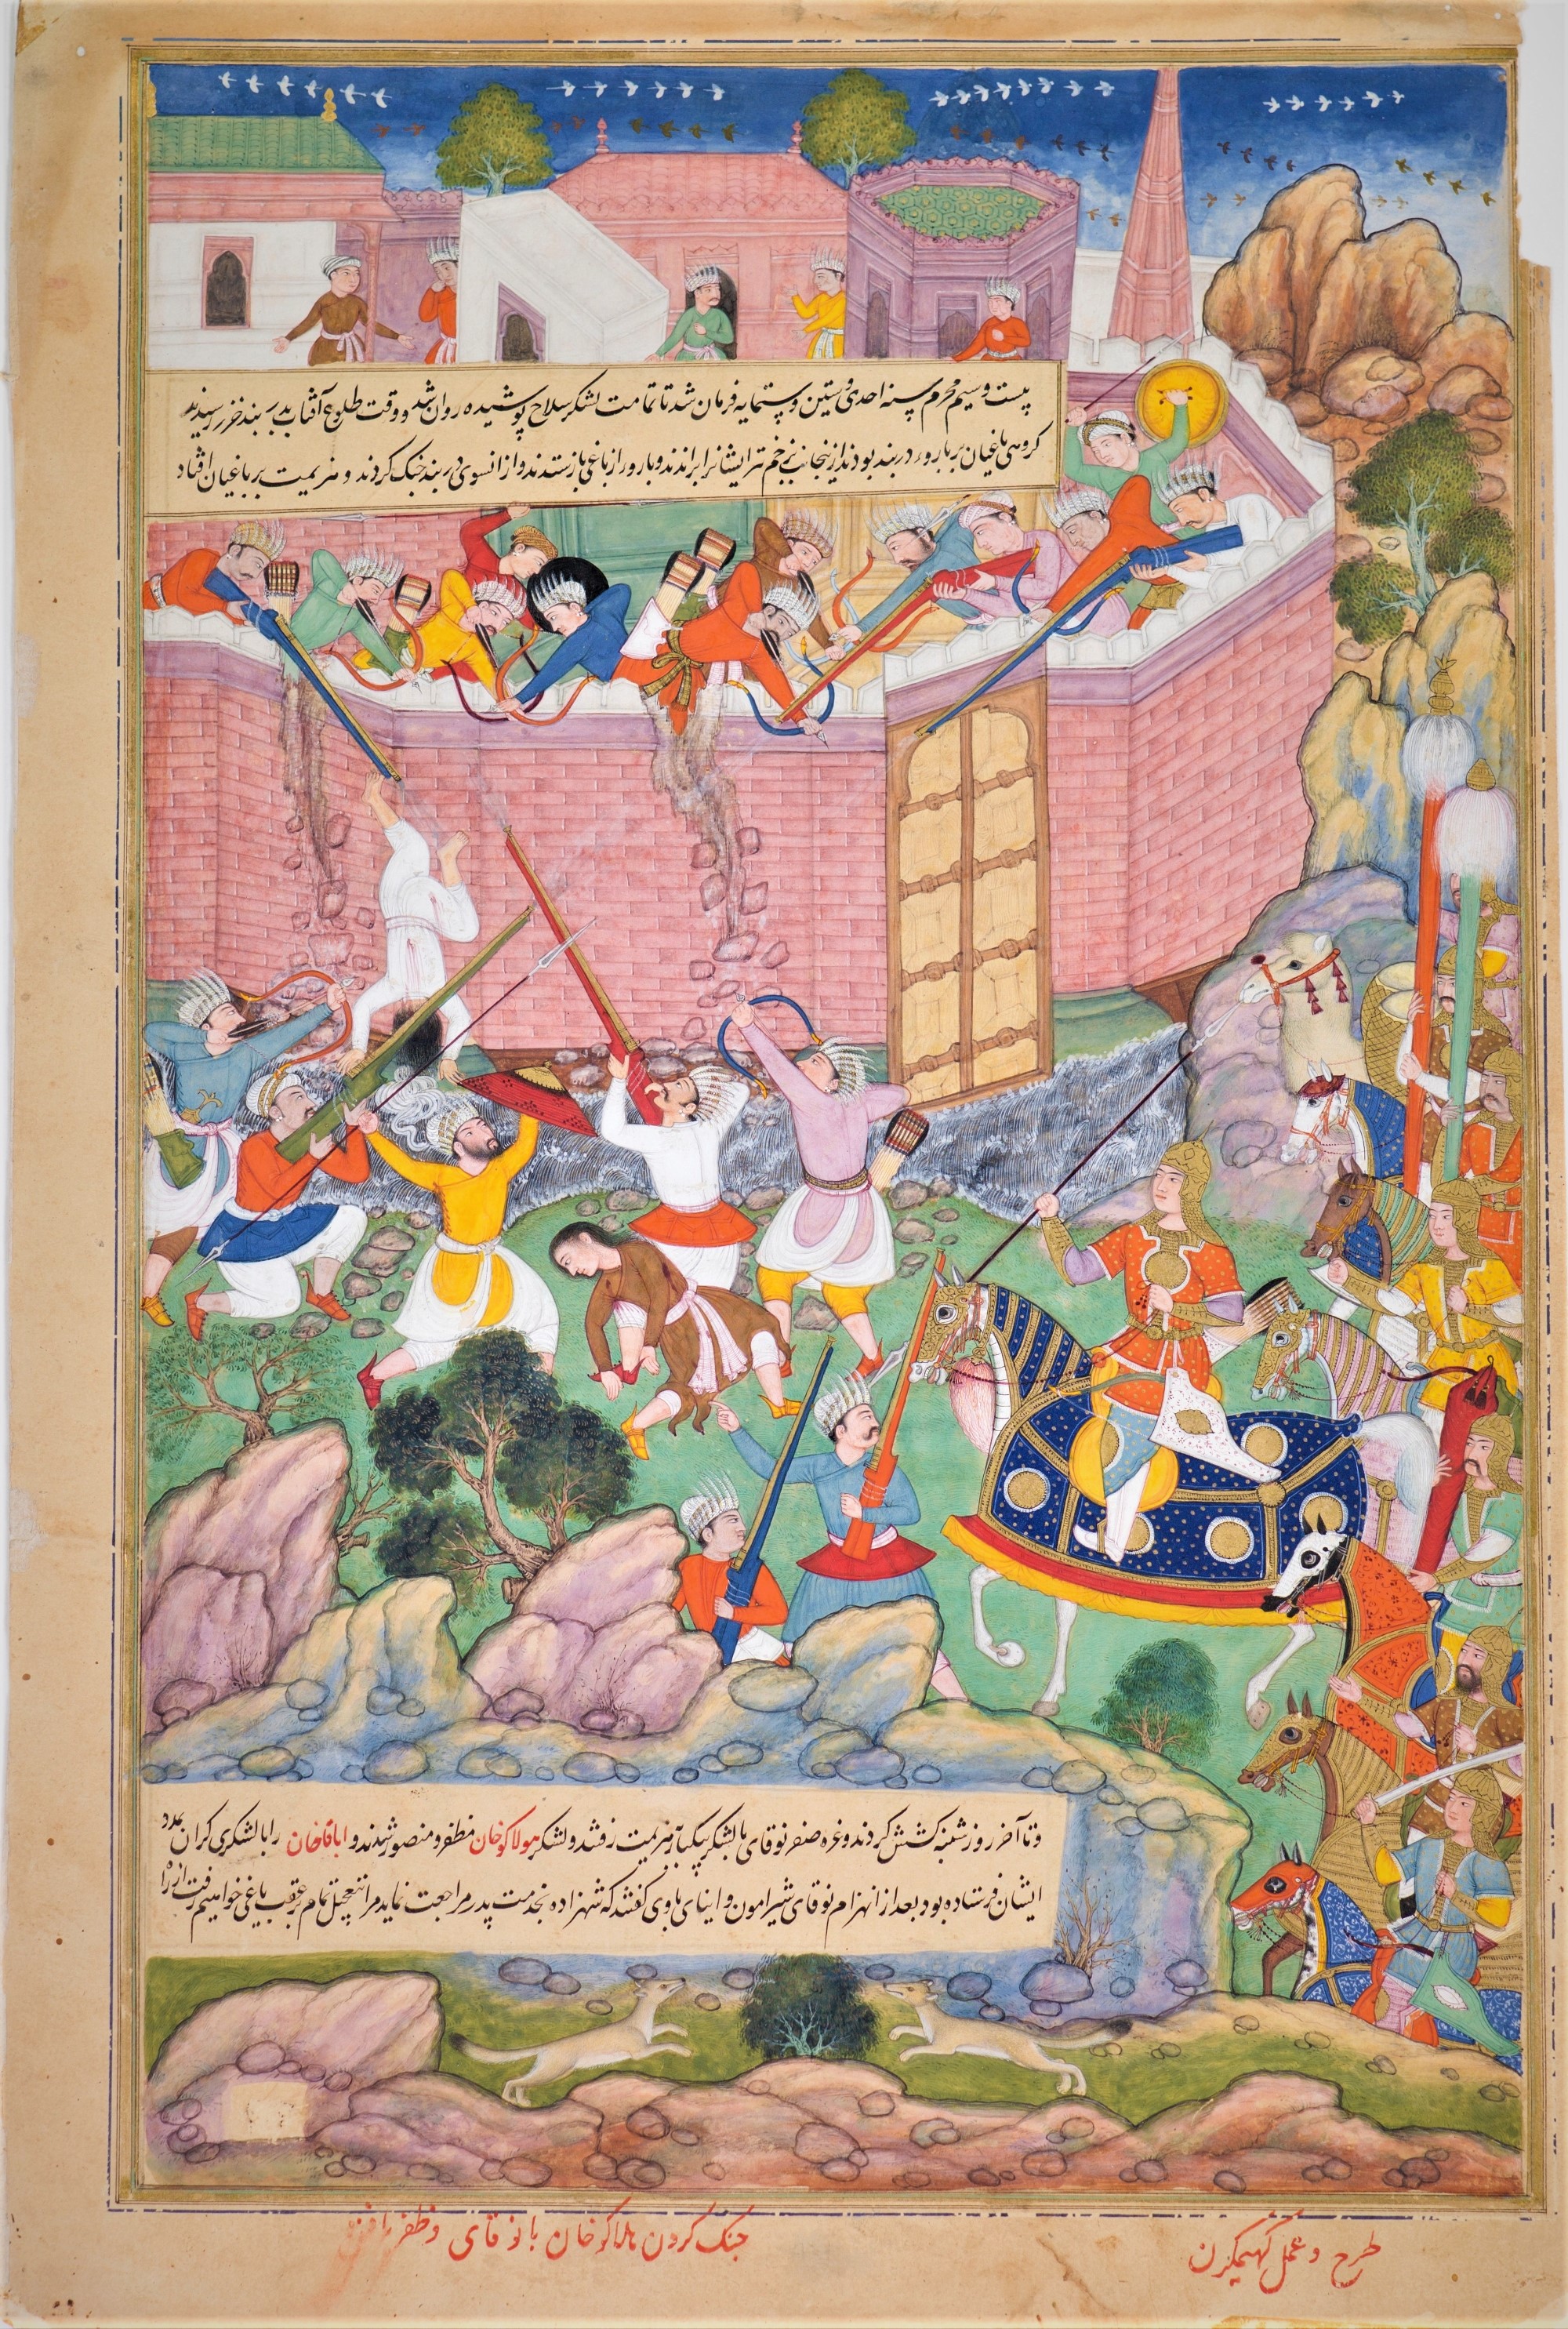 بیست و سیم محرم سنه احدی و ستین و ستمایه فرمان شد تا تمامت لشکر سلاح پوشیده روان شد و وقت طلوع آفتاب بدربند خزر رسیدند
کروهی یاغیان بر باروء دربند بودند ازینجانب بزخم تیر ایشانرا براندند و بارو را از یاغی بازستدند و از انسوی دربند جنک کردند و هزیمت بر یاغیان افتاد
و تا آخر روز شنبه کشش کردند و غره صفر نوقای با لشکر بیکبار هزیمت رفتند و لشکر هولاکو خان مظفر و منصور شدند و اباقا خان را با لشکری کران بمدد
ایشان فرستاده بود بعد از انهزام نوقای شیرامون و ابنای باوی کفتند که شهزاده بخدمت پدر مراجعت نماید مرا بتعجیل تمام بر عقب یاغی خواهیم رفت از راه
جنک کردن هلاکو خان با نوقای و ظفر یافتن
طرح و عمل کهیمکرن